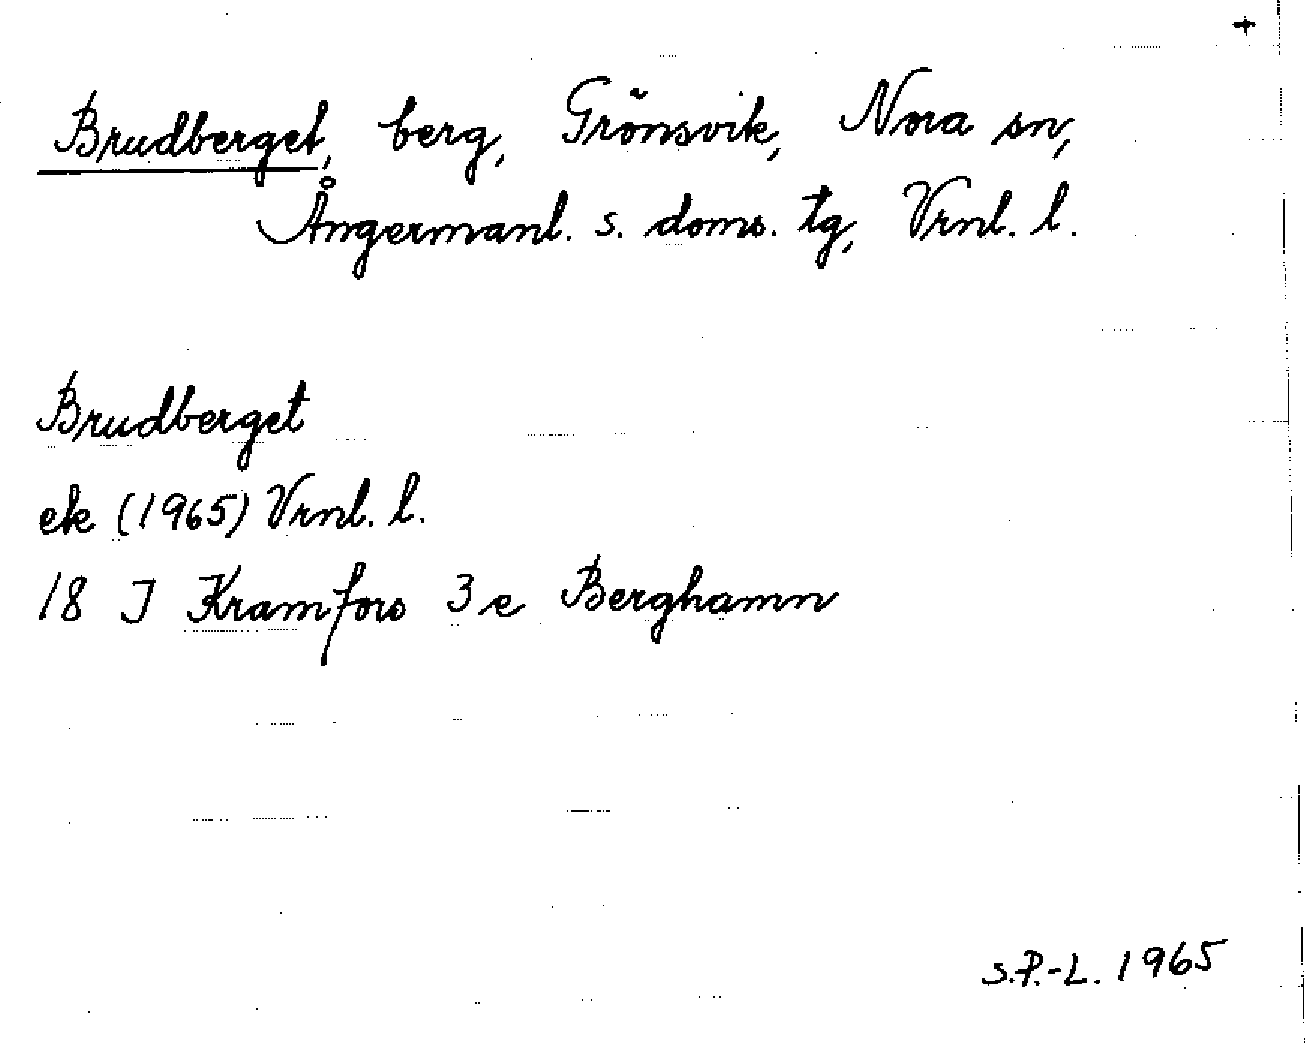 +
Brudberget, berg, Grönsvik, Nora sn,
Ångermanl. s. doms. tg, Vrnl. l.
Brudberget
ek (1965) Vrnl. l.
18 I Kramfors 3 e Berghamn
S.P.-L. 1965